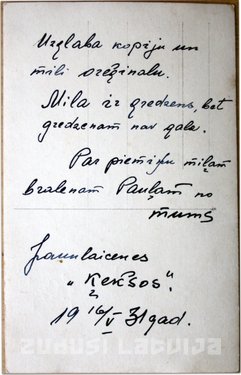 Uzglabā kopiju un
mīli oreģinalu.
Mīla ir gredzens, bet
gredzenam nav gala.
Par piemiņu mīļam
bralenam Pauļam no
mums
Jaunlaicenes
„Ķekšos".
19 16/V 31 gad.
zudusi Latvija